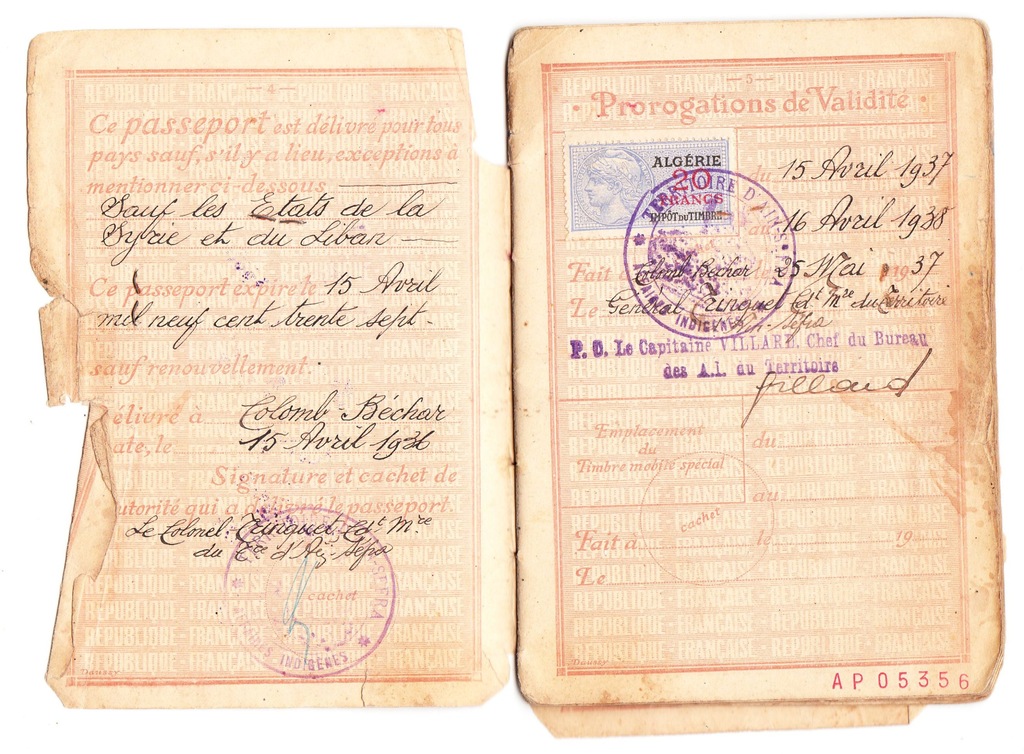 — 4 —
Ce passeport est délivré pour tous
pays sauf, s'il y a lieu, exceptions à
mentionner ci-dessous
Sauf les Etats de la
Syrie et du Liban
Ce passeport expire le 15 Avril
mil neuf cent trente sept -
sauf renouvellement.
élivré à Colomb-Béchar
ate, le 15 Avril 1936
Signature et cachet de
utorité qui a délivré le passeport.
Le Colonel Trinquet Cdt Mre
du Tre d'Aïn-Sefra
cachet
AFFAIRES INDIGÈNES
Daussy
— 5 —
Prorogations de Validité
ALGÉRIE
20
FRANCS
IMPÔT DU TIMBRE
du 15 Avril 1937
au 16 Avril 1938
TERRITOIRE D'AIN-SEFRA
AFFAIRES INDIGÈNES
Fait à Colomb Béchar le 25 Mai 1937
Le Général Trinquet Cdt Mre du Territoire
d'Aïn-Sefra
P. O. Le Capitaine VILLARD, Chef du Bureau
des A.I. du Territoire
Villard
Emplacement
du
Timbre mobile spécial
du
au
cachet
Fait à le 19
Le
Daussy
AP05356